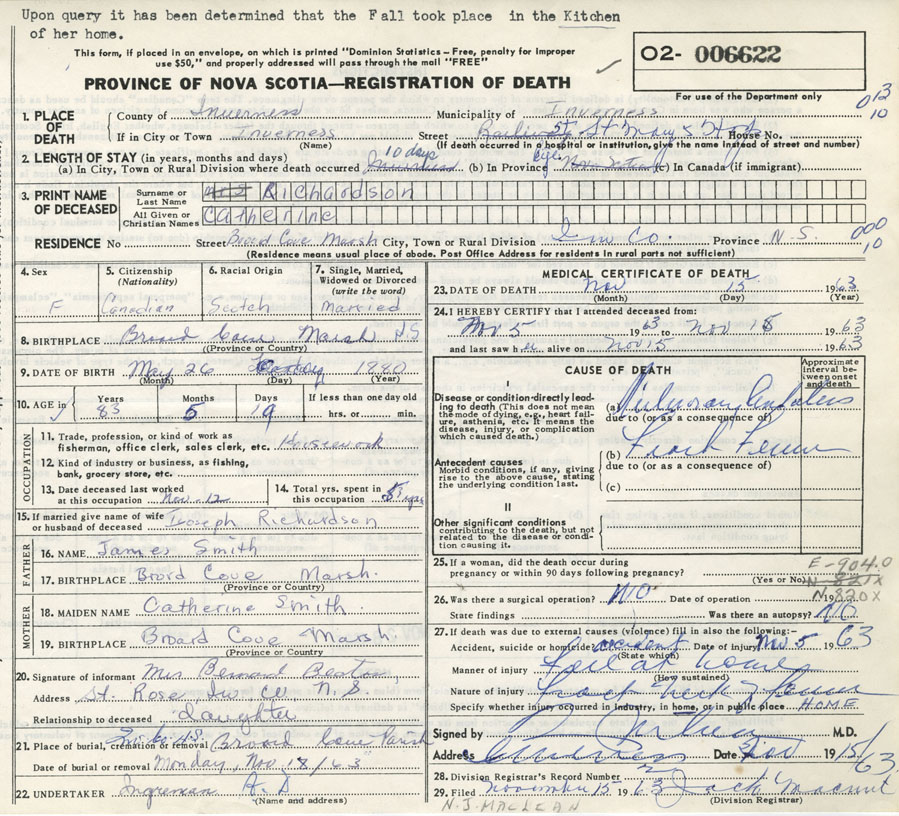 Upon query it has been determined that the Fall took place in the Kitchen
of her home.
This form, if placed in an envelope, on which is printed "Dominion Statistics - Free, penalty for improper
use $50," and properly addressed will pass through the mail "FREE"
O2- 006622
PROVINCE OF NOVA SCOTIA—REGISTRATION OF DEATH
For use of the Department only
1. PLACE OF DEATH
County of Inverness Municipality of Inverness
013
10
If in City or Town Inverness Street St Mary's Hosp House No.
(Name) (If death occurred in a hospital or institution, give the name instead of street and number)
2. LENGTH OF STAY (in years, months and days)
(a) In City, Town or Rural Division where death occurred 10 days (b) In Province life (c) In Canada (if immigrant)
3. PRINT NAME OF DECEASED
Surname or Last Name Richardson
All Given or Christian Names Catherine
RESIDENCE No Street Broad Cove Marsh City, Town or Rural Division Inv Co. Province N.S.
000
10
(Residence means usual place of abode. Post Office Address for residents in rural parts not sufficient)
4. Sex
F
5. Citizenship (Nationality)
Canadian
6. Racial Origin
Scotch
7. Single, Married, Widowed or Divorced (write the word)
Married
8. BIRTHPLACE Broad Cove Marsh NS
(Province or Country)
9. DATE OF BIRTH May 26 1880
(Month) (Day) (Year)
10. AGE in
Years 83
Months 5
Days 19
If less than one day old
hrs. or min.
OCCUPATION
11. Trade, profession, or kind of work as
fisherman, office clerk, sales clerk, etc. Housework
12. Kind of industry or business, as fishing,
bank, grocery store, etc.
13. Date deceased last worked
at this occupation Nov. 12
14. Total yrs. spent in
this occupation
15. If married give name of wife
or husband of deceased Joseph Richardson
FATHER
16. NAME James Smith
17. BIRTHPLACE Broad Cove Marsh.
(Province or Country)
MOTHER
18. MAIDEN NAME Catherine Smith.
19. BIRTHPLACE Broard Cove Marsh
(Province or Country)
20. Signature of informant Mrs Bernard Beaton,
Address St. Rose Inv Co N.S
Relationship to deceased daughter
21. Place of burial, cremation or removal Broad Cove Parish
Date of burial or removal Monday, Nov 18/63
22. UNDERTAKER Ingreman A.D
(Name and address)
MEDICAL CERTIFICATE OF DEATH
23. DATE OF DEATH Nov 15 1963
(Month) (Day) (Year)
24. I HEREBY CERTIFY that I attended deceased from:
Nov 5 1963 to Nov 15 1963
and last saw her alive on Nov 15 1963
CAUSE OF DEATH
Approximate interval between onset and death
I
Disease or condition directly leading
to death (This does not mean
the mode of dying, e.g., heart failure,
asthenia, etc. It means the
disease, injury, or complication
which caused death.)
(a) Pulmonary Embolus
due to (or as a consequence of)
(b) Fract Femur
due to (or as a consequence of)
(c)
Antecedent causes
Morbid conditions, if any, giving
rise to the above cause, stating
the underlying condition last.
II
Other significant conditions
contributing to the death, but not
related to the disease or condition
causing it.
25. If a woman, did the death occur during
pregnancy or within 90 days following pregnancy?
(Yes or No)
E-904.0
N-821X
N-820X
26. Was there a surgical operation? NO Date of operation
State findings Was there an autopsy? NO
27. If death was due to external causes (violence) fill in also the following:-
Accident, suicide or homicide accident Date of injury Nov 5 1963
(State which)
Manner of injury Fell at home
(How sustained)
Nature of injury Fract neck Femur
Specify whether injury occurred in industry, in home, or in public place HOME
Signed by M.D.
Address Inverness Date Nov 1915/63
28. Division Registrar's Record Number
29. Filed November 15 1963
(Division Registrar)
N.J. MACLEAN